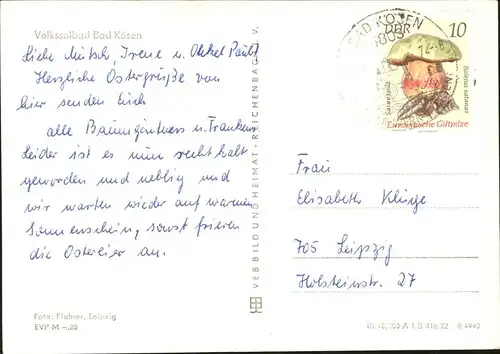 Volkssolbad Bad Kösen
Liebe Mutsch, Irene u. Onkel Paul!
Herzliche Ostergrüße von
hier senden Euch
alle Baumgärtners u. Frankens
Leider ist es nun recht kalt
geworden und neblig und
wir warten wieder auf warmen
Sonnenschein, sonst frieren
die Ostereier an.
Foto: Flohrer, Leipzig
EVP M –,20
VEB BILD UND HEIMAT · REICHENBACH I. V.
BAD KÖSEN
DDR
10
Satanspilz
Boletus satanas
Europäische Giftpilze
Frau
Elisabeth Klinge
705 Leipzig
Holsteinstr. 27
A 1 B 416/72 B 4940